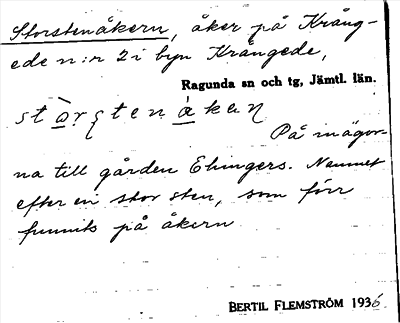 Storstenåkern, åker på Krång-
ede n:r 2 i byn Krångede,
Ragunda sn och tg, Jämtl. län.
På inägor-
na till gården Ehingers. Namnet
efter en stor sten, som förr
funnits på åkern
BERTIL FLEMSTRÖM 1936